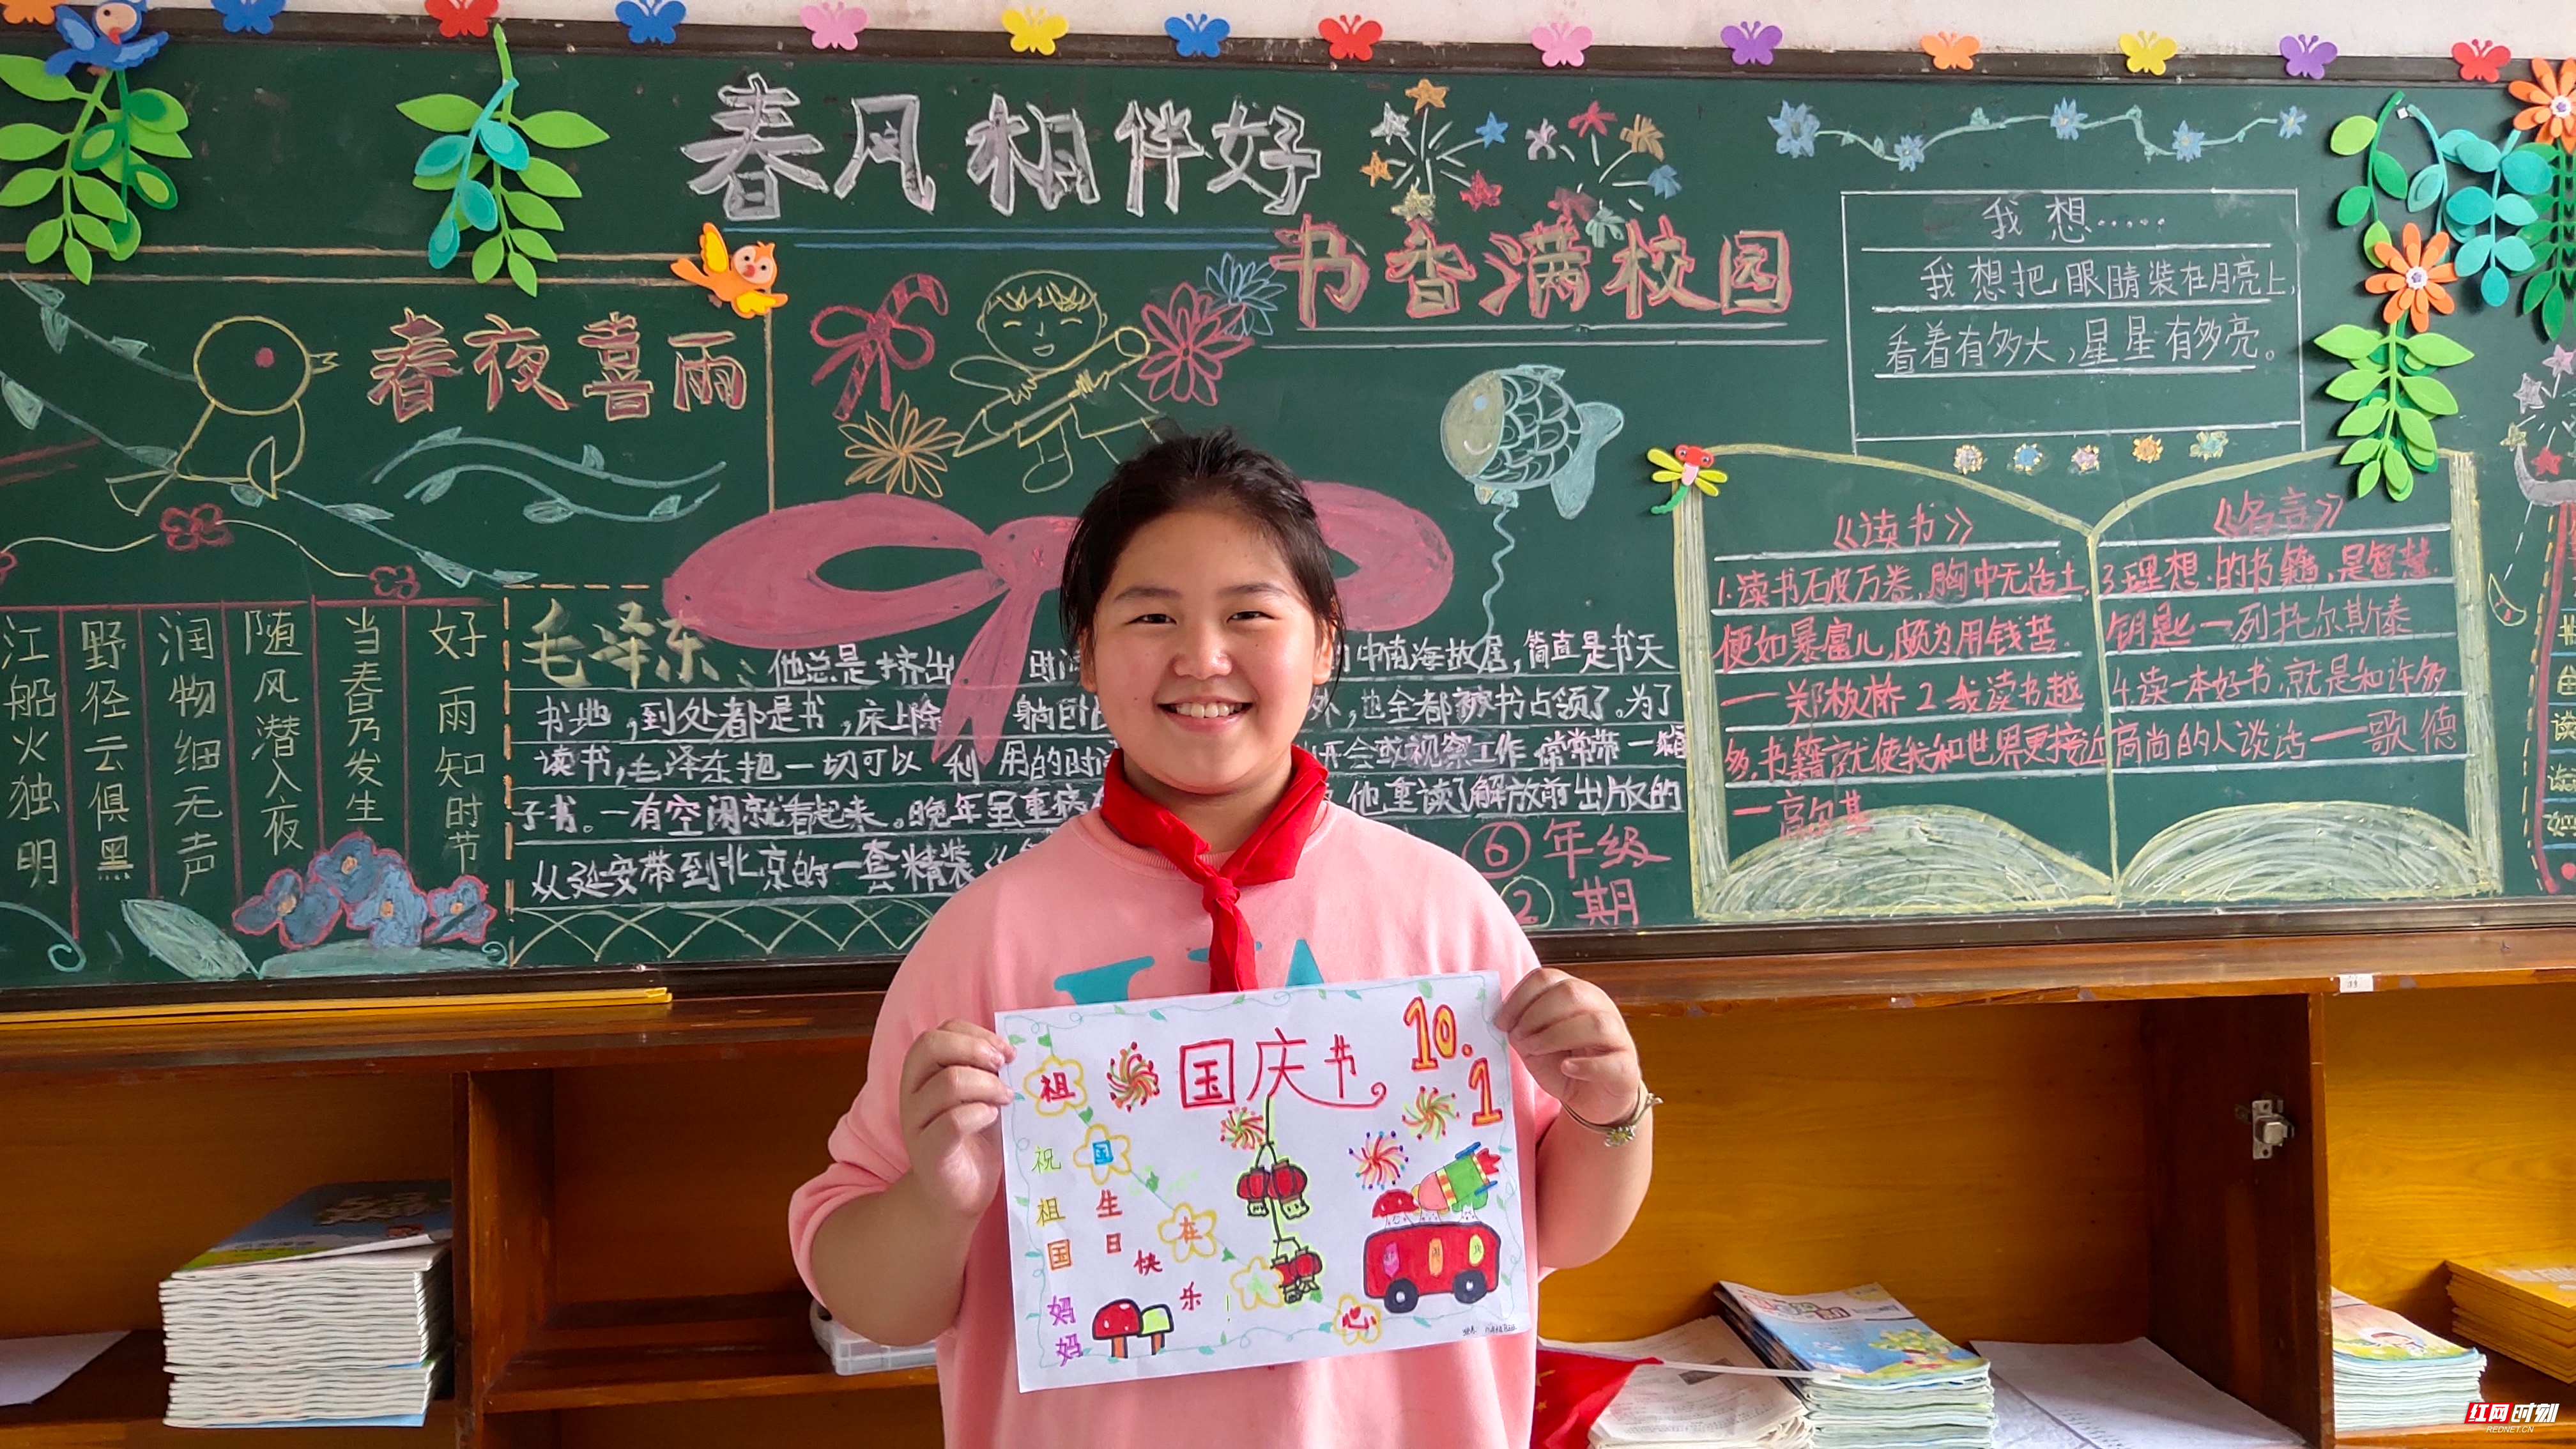 春风相伴好
书香满校园
春夜喜雨
好雨知时节
当春乃发生
随风潜入夜
润物细无声
野径云俱黑
江船火独明
毛泽东：他总是挤出
中南海故居，简直是书天
书地，到处都是书，床上除
躺卧
外，也全都被书占领了。为了
读书，毛泽东把一切可以利用的时
开会或视察工作常常带一箱
子书。一有空闲就看起来。晚年虽重病
他重读了解放前出版的
从延安带到北京的一套精装《
6年级
2期
我想……
我想把眼睛装在月亮上，
看着有多大，星星有多亮。
《读书》
1.读书破万卷，胸中无适主
便如暴富儿，颇为用钱苦.
一郑板桥 2.我读书越
多，书籍就使我和世界更接近
一高尔基
《名言》
3.理想的书籍，是智慧
钥匙一列托尔斯泰
4.读一本好书，就是和许多
高尚的人谈话——歌德
国庆节
10.1
祖国在心
祝祖国妈妈
生日快乐
红网时刻
REDNET.CN